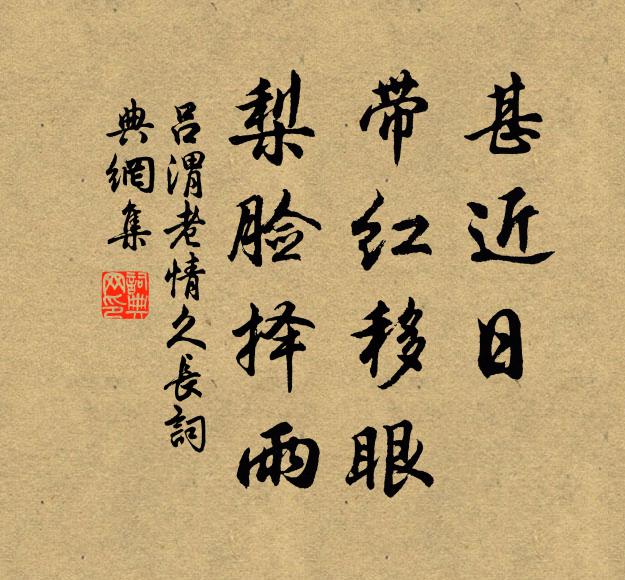 甚近日
带红移眼
梨脸择雨
吕渭老情久長詞
典網集
詞典
网印